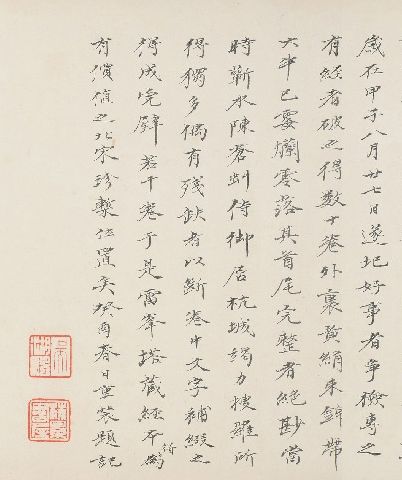 歲在甲子八月廿七日遂圯好事者爭撿專之
有經者破之得數十卷外裹黃絹束錦帶
大半已霉爛零落其首尾完整者絕尠當
時蘄水陳蒼虬侍御居杭城竭力搜羅所
得獨多偶有殘缺者以斷卷中文字補綴之
得成完璧若干卷于是雷峯塔藏經本爲
有價值之北宋珍槧矣癸酉春日重裝題記
梅景書屋